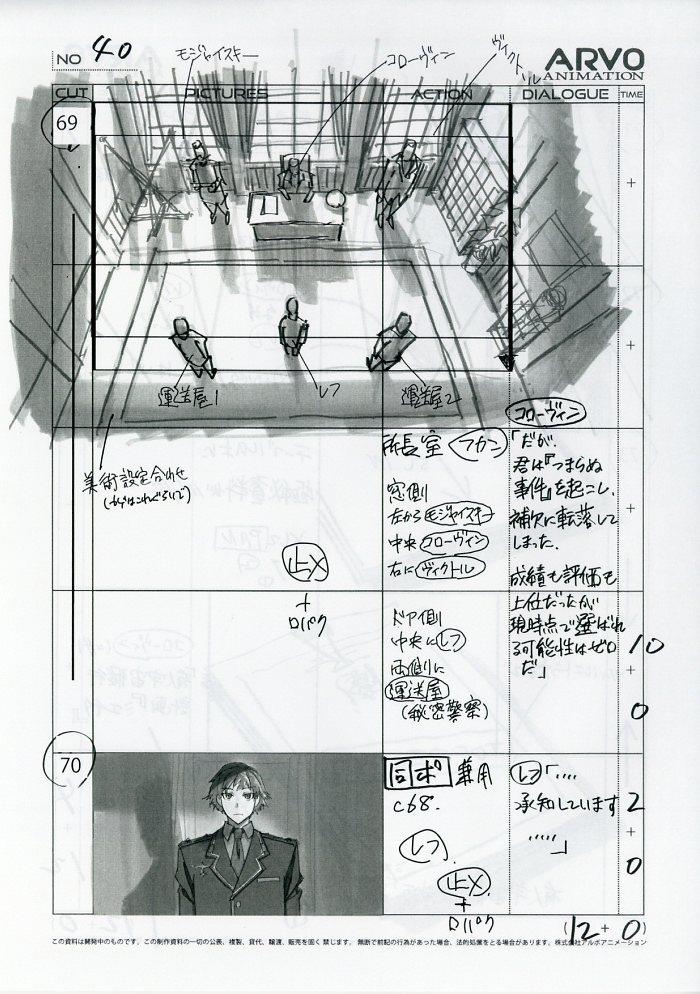 NO 40
モジャイスキー
コローヴィン
ヴィクトル
ARVO
ANIMATION
CUT
PICTURES
ACTION
DIALOGUE
TIME
69
運送屋1
レフ
運送屋2
美術設定合わせ
止メ
+
口パク
所長室 フカン
窓側
左から モジャイスキー
中央 コローヴィン
右に ヴィクトル
ドア側
中央に レフ
両側に
運送屋
(秘密警察)
コローヴィン
「だが、
君は『つまらぬ
事件』を起こし、
補欠に転落して
しまった。
成績も評価も
上位だったが
現時点で選ばれ
る可能性はゼロ
だ」
10
+
0
70
同ポ 兼用
C68.
レフ
止メ
+
口パク
レフ「‥‥
承知しています
‥‥」
2
+
0
(12+0)
この資料は開発中のものです。この制作資料の一切の公表、複製、貸代、譲渡、販売を固く禁じます。 無断で前記の行為があった場合、法的処置をとる場合があります。株式会社アルボアニメーション